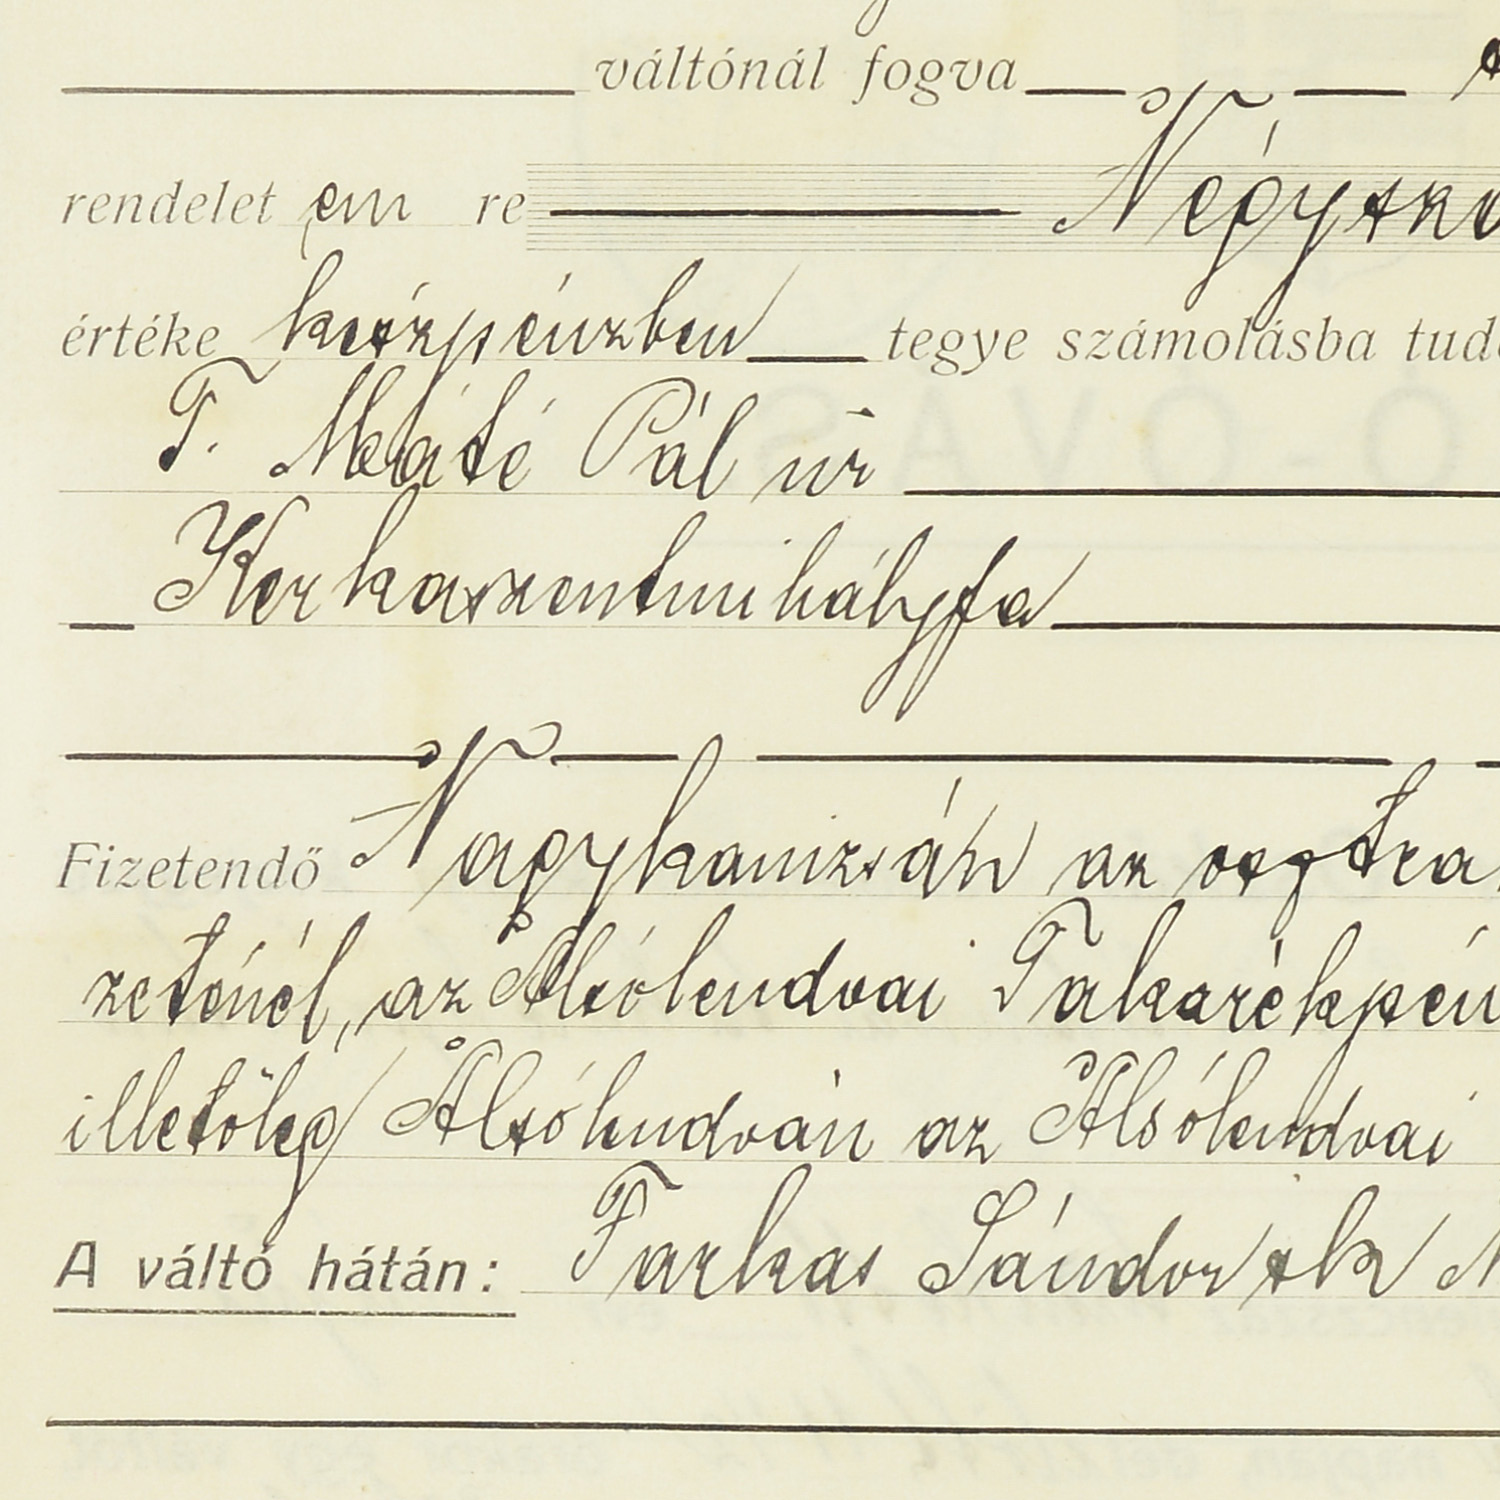 váltónál fogva
rendelet em re Négyszá
értéke készpénzben tegye számolásba tud
T. Máté Pál úr
Kerkaszentmihályfa
Fizetendő Nagykanizsán az osztrák
zeténél, az Alsólendvai Takarékpén
illetőleg Alsólendván az Alsólendvai
A váltó hátán: Farkas Sándor sk